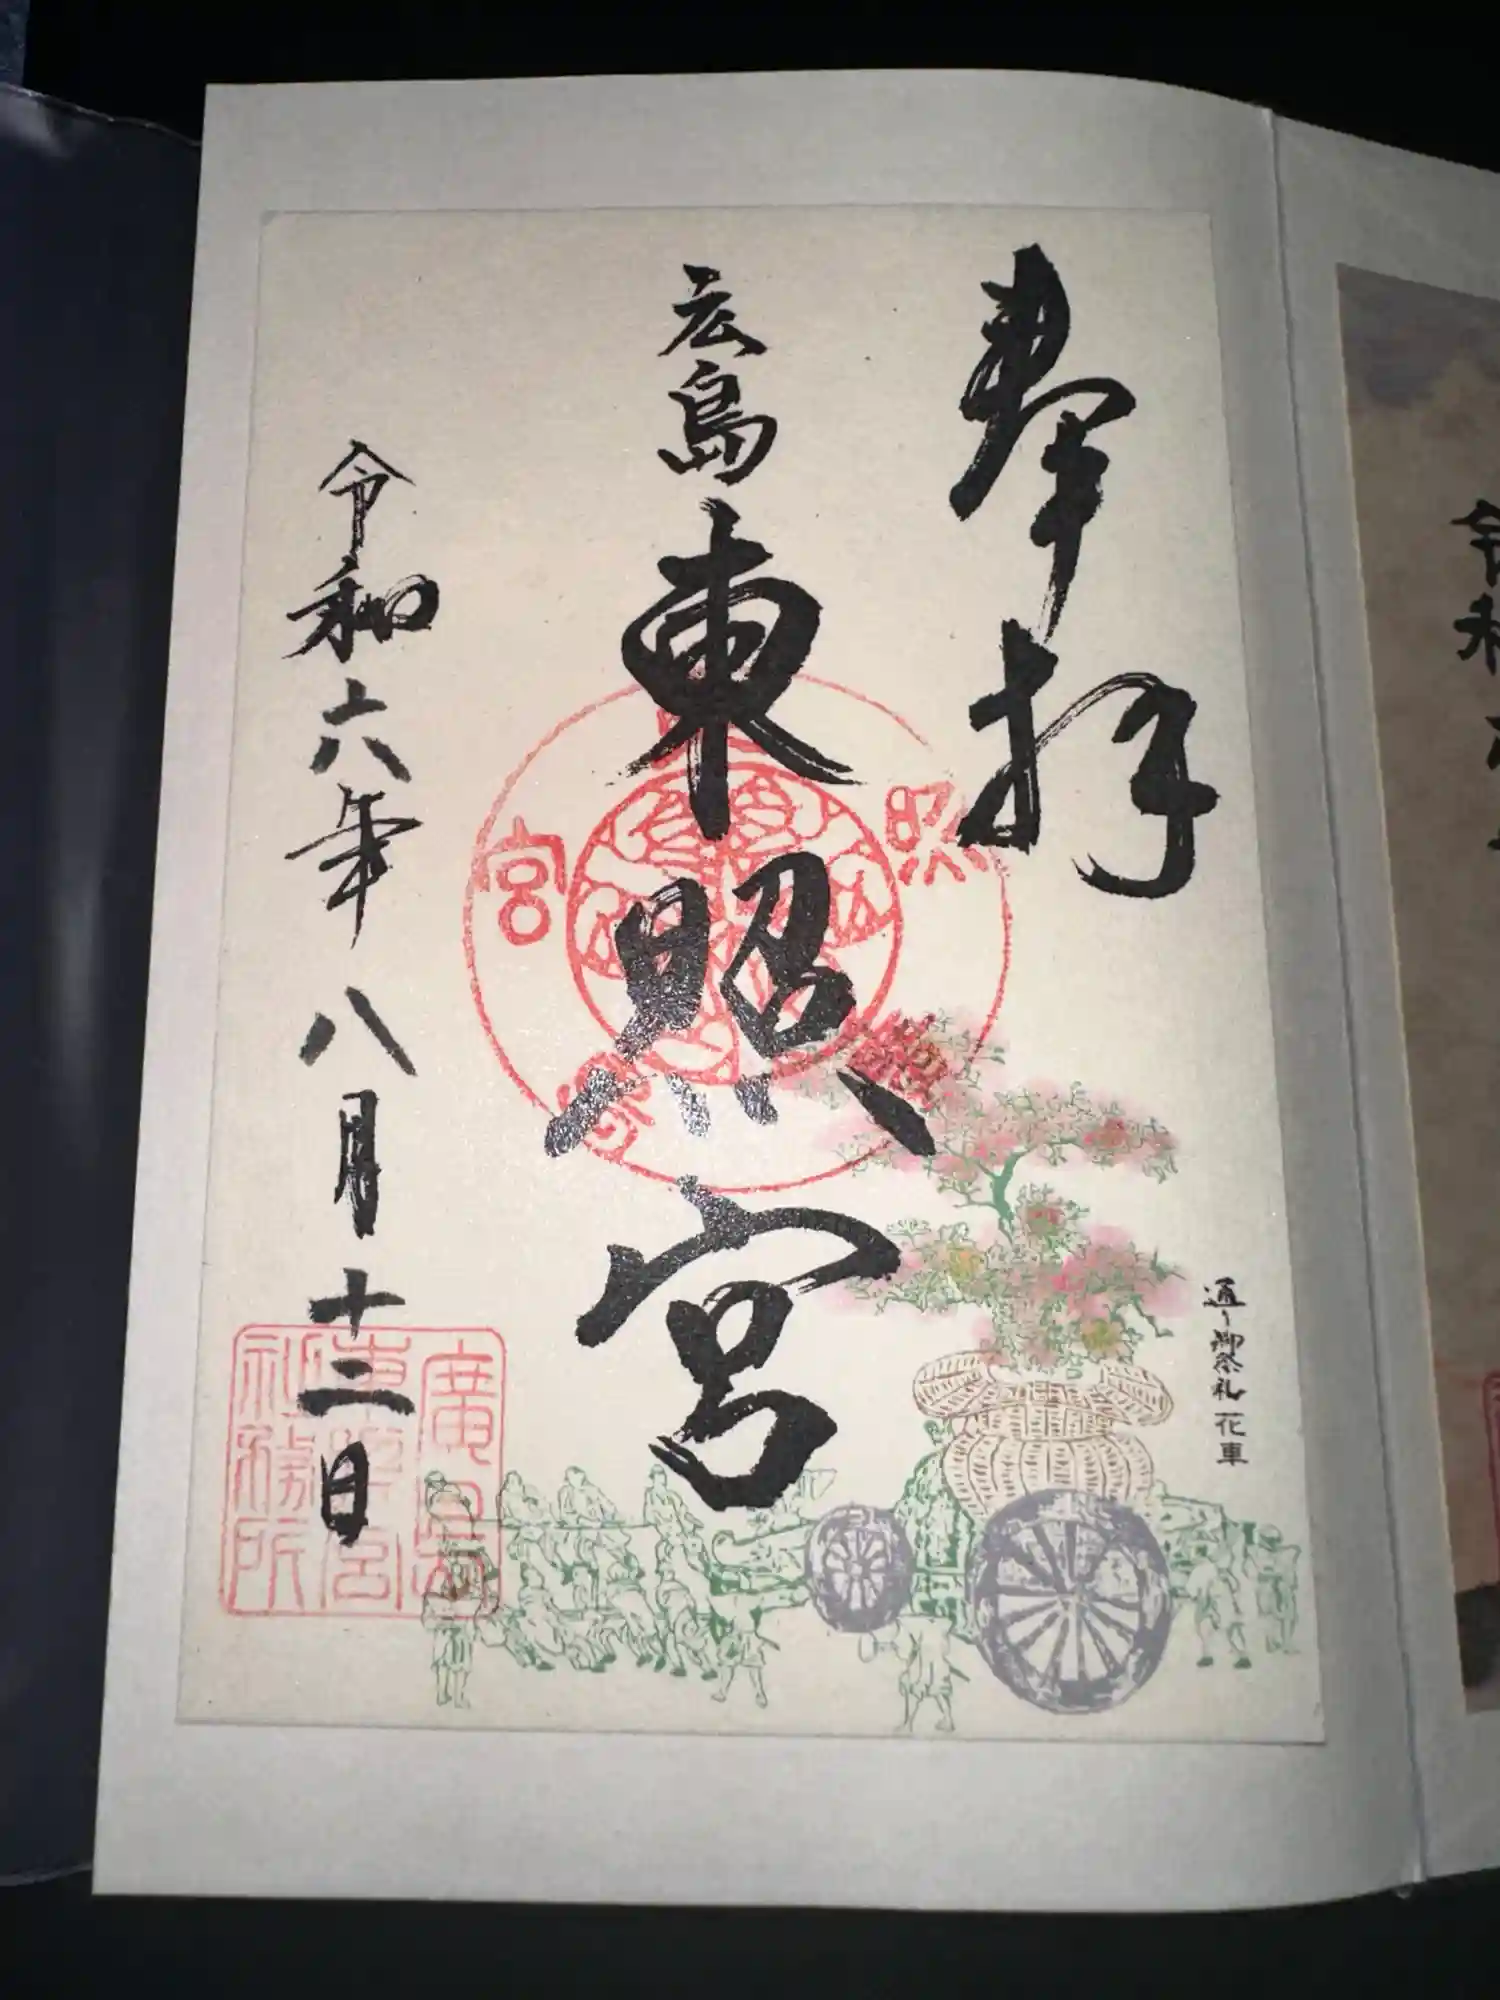 奉拝
広島
東照宮
通り御祭礼 花車
令和六年八月十二日
廣島
東照宮
社務所
照
宮
令和六